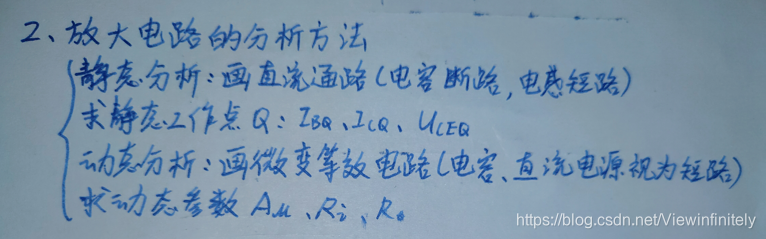 2、放大电路的分析方法
静态分析：画直流通路(电容断路，电感短路)
求静态工作点Q：IBQ、ICQ、UCEQ
动态分析：画微变等效电路(电容、直流电源视为短路)
求动态参数 Au、Ri、Ro
https://blog.csdn.net/Viewinfinitely